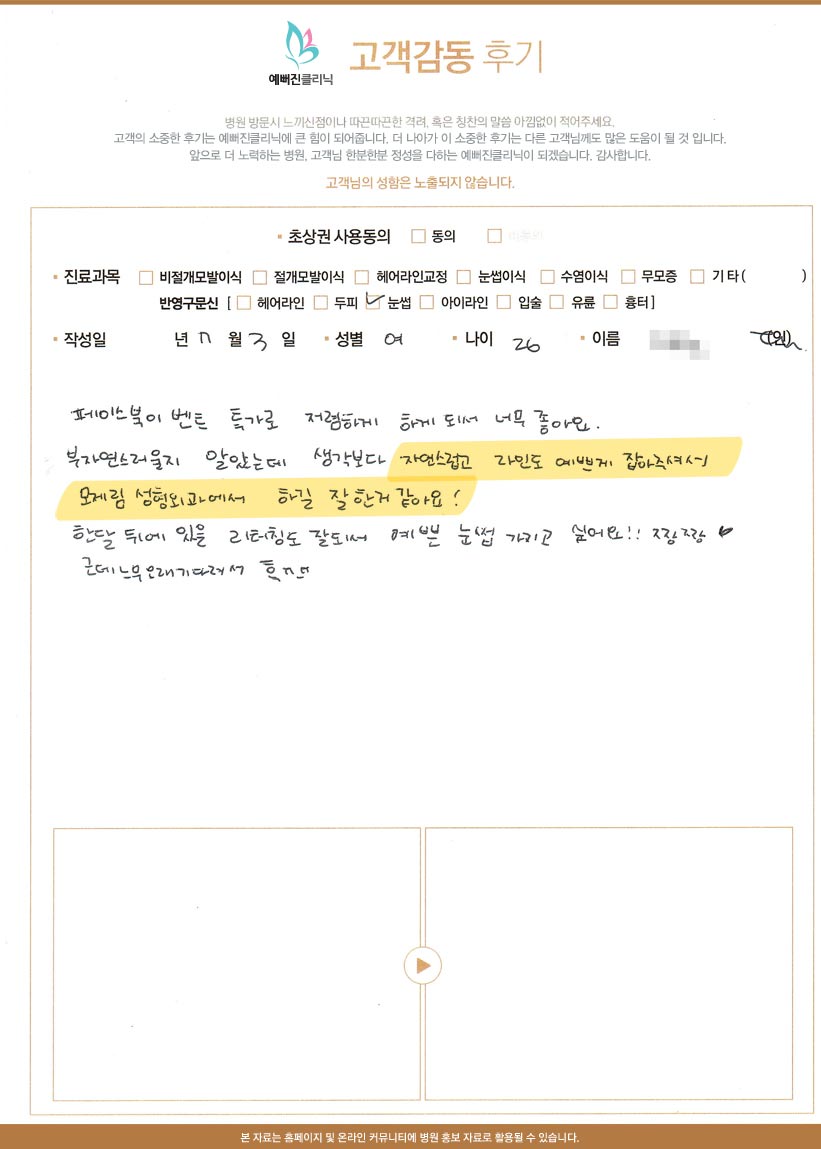 예뻐진클리닉
고객감동 후기
병원 방문시 느끼신점이나 따끈따끈한 격려, 혹은 칭찬의 말씀 아낌없이 적어주세요.
고객의 소중한 후기는 예뻐진클리닉에 큰 힘이 되어줍니다. 더 나아가 이 소중한 후기는 다른 고객님께도 많은 도움이 될 것 입니다.
앞으로 더 노력하는 병원, 고객님 한분한분 정성을 다하는 예뻐진클리닉이 되겠습니다. 감사합니다.
고객님의 성함은 노출되지 않습니다.
▪ 초상권 사용동의 □ 동의 □ 비동의
▪ 진료과목 □ 비절개모발이식 □ 절개모발이식 □ 헤어라인교정 □ 눈썹이식 □ 수염이식 □ 무모증 □ 기 타 ( )
반영구문신 [ □ 헤어라인 □ 두피 ☑ 눈썹 □ 아이라인 □ 입술 □ 유륜 □ 흉터 ]
▪ 작성일 년 7 월 3 일 ▪ 성별 여 ▪ 나이 26 ▪ 이름 (인)
페이스북이벤트 특가로 저렴하게 하게 되서 너무 좋아요.
부자연스러울지 알았는데 생각보다 자연스럽고 라인도 예쁘게 잡아주셔서
모제림 성형외과에서 하길 잘한거 같아요!
한달 뒤에 있을 리터칭도 잘되서 예쁜 눈썹 가지고 싶어요!! 짱짱 ♥
근데 너무 오래기다려서
본 자료는 홈페이지 및 온라인 커뮤니티에 병원 홍보 자료로 활용될 수 있습니다.